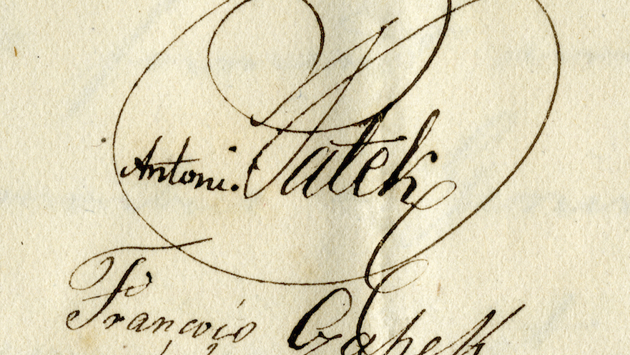 Antoni. Patek
François Czapek